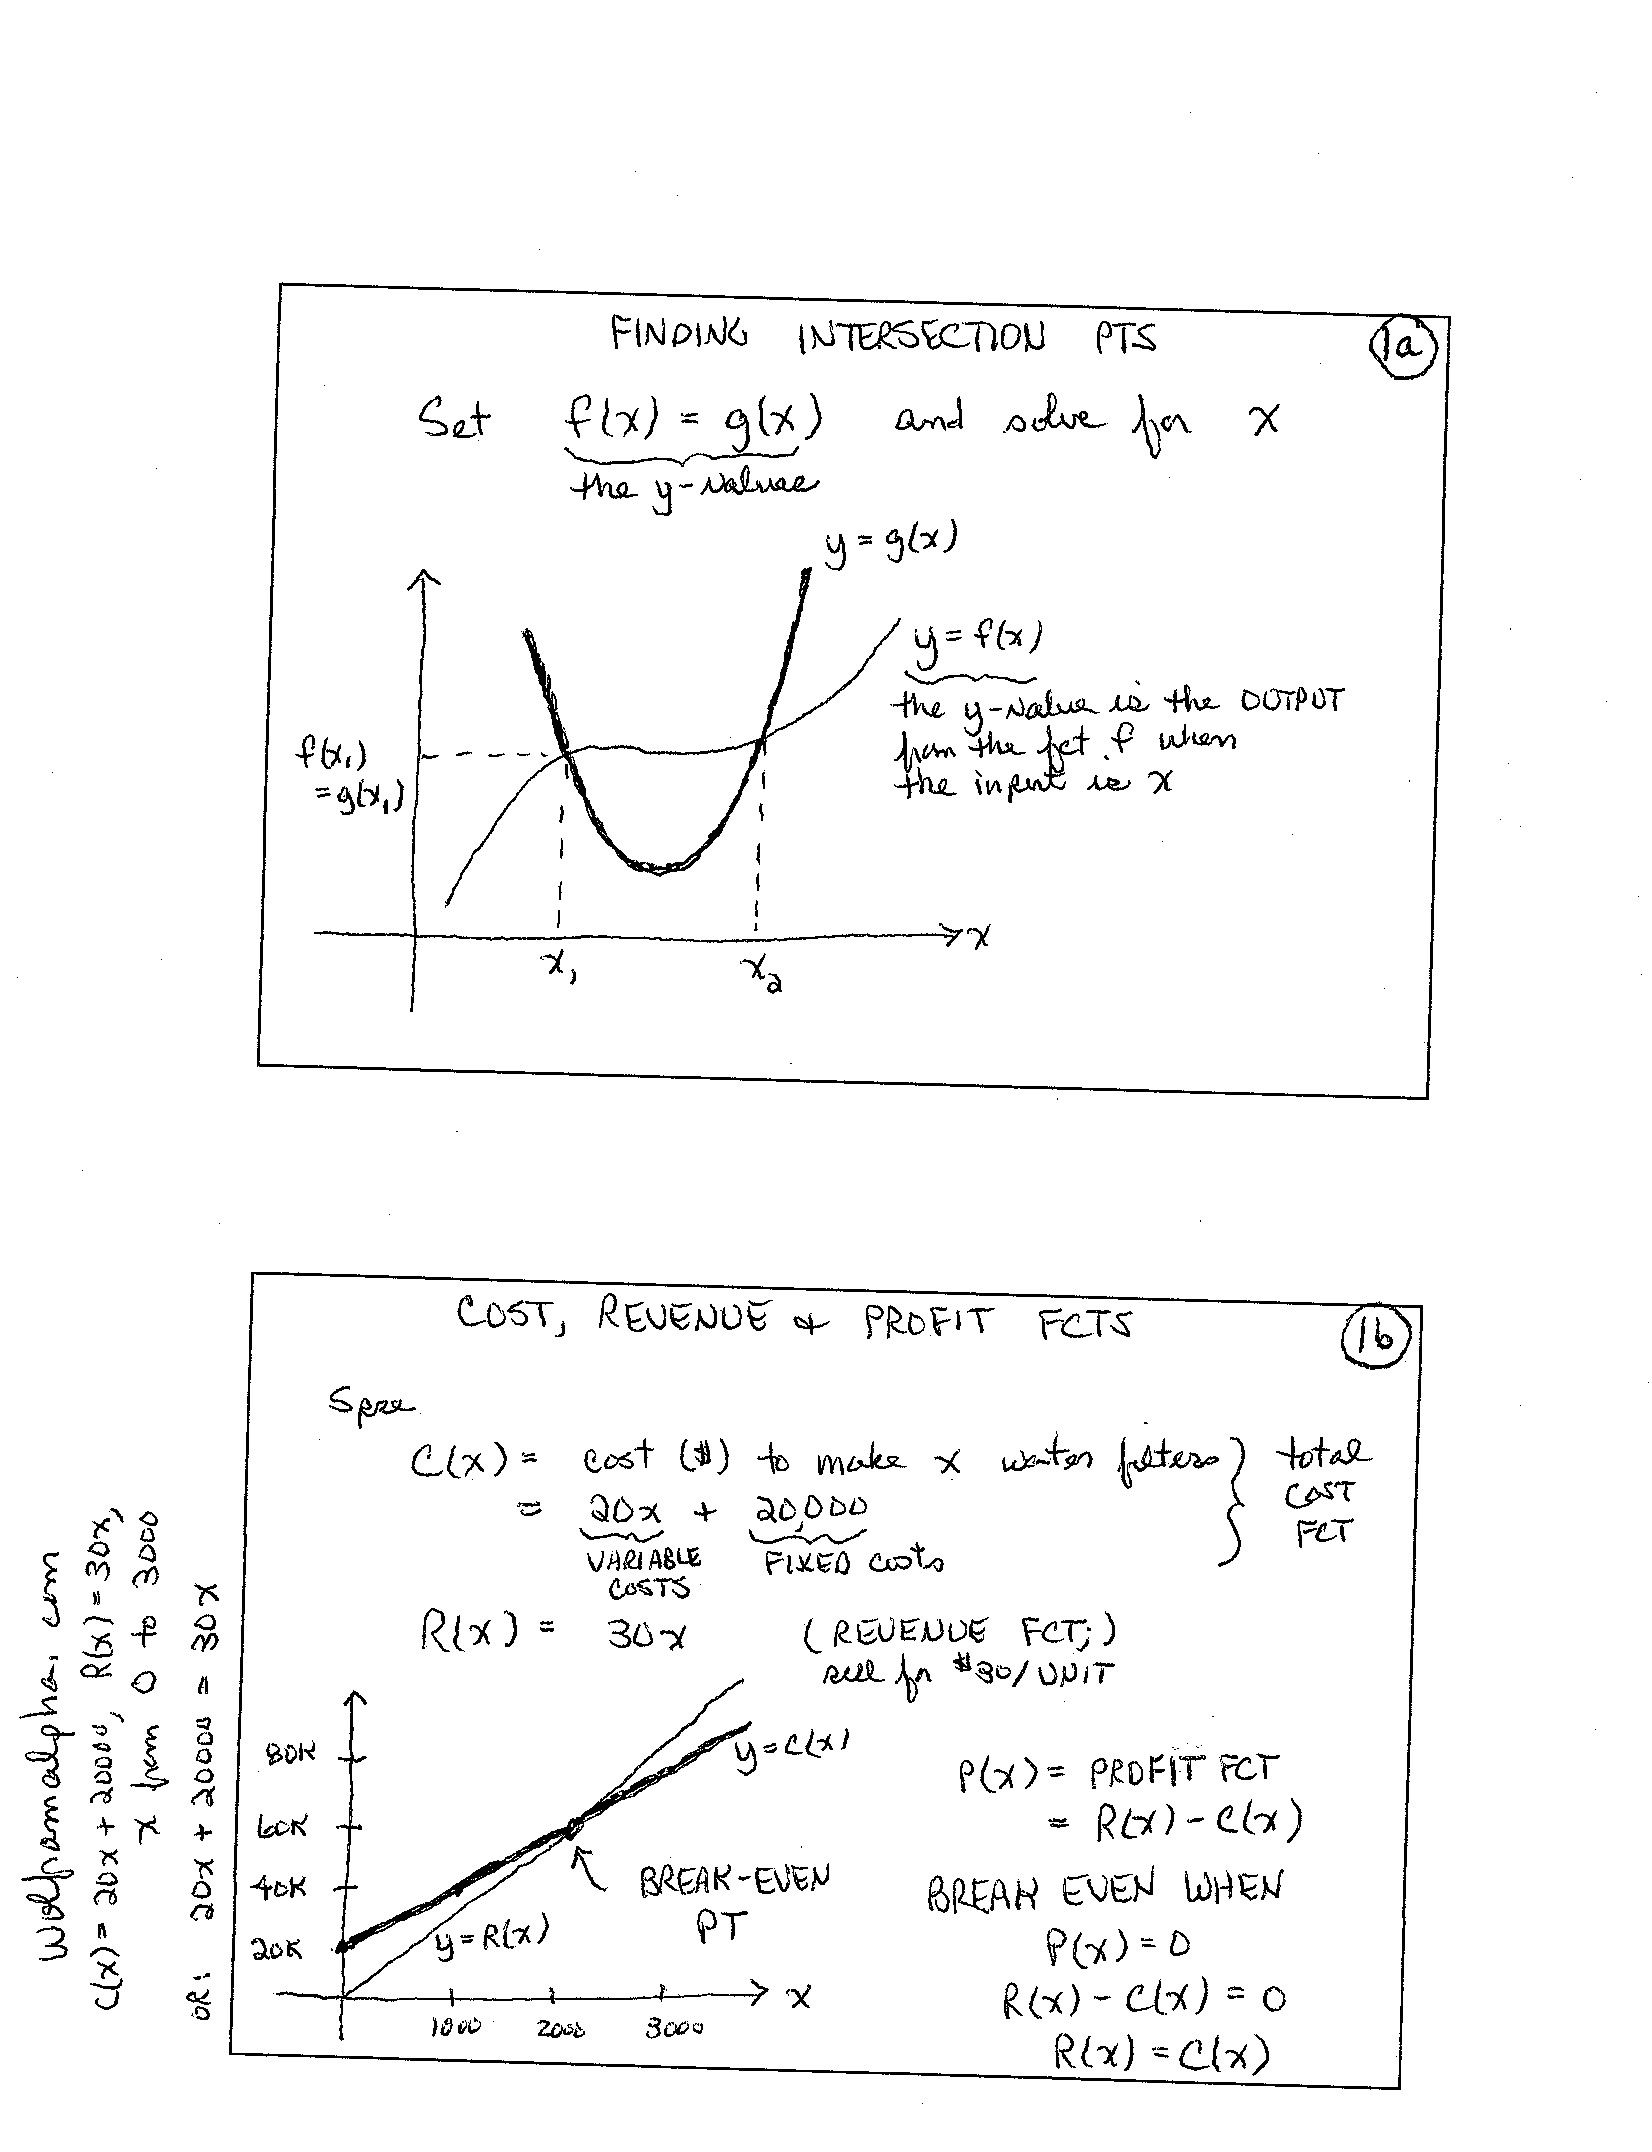 FINDING INTERSECTION PTS
1a
Set f(x) = g(x) and solve for x
the y-values
y = g(x)
y = f(x)
the y-value is the OUTPUT
from the fct f when
the input is x
f(x₁)
= g(x₁)
x
x₁ x₂
COST, REVENUE & PROFIT FCTS
1b
Spse
C(x) = cost ($) to make x water filters } total
= 20x + 20,000 COST
FCT
VARIABLE FIXED costs
COSTS
R(x) = 30x (REVENUE FCT;)
sell for $30/UNIT
80K
60K
40K
20K
y = C(x)
y = R(x)
BREAK-EVEN
PT
x
1000 2000 3000
P(x) = PROFIT FCT
= R(x) - C(x)
BREAK EVEN WHEN
P(x) = 0
R(x) - C(x) = 0
R(x) = C(x)
Wolframalpha.com
C(x) = 20x + 20000, R(x) = 30x,
x from 0 to 3000
OR: 20x + 20000 = 30x